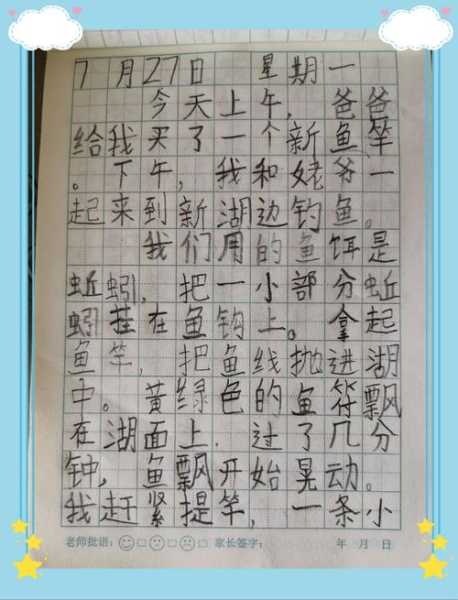 7月27日 星期一
今天上午，爸爸
给我买了一个新鱼竿
。下午，我和姥爷一
起来到新湖边钓鱼。
我们用的鱼饵是
蚯蚓，把一小部分蚯
蚓挂在鱼钩上。拿起
鱼竿，把鱼线抛进湖
中。黄绿色的鱼符飘
在湖面上.过了几分
钟，鱼飘开始晃动。
我赶紧提竿，一条小
老师批语： 家长签字： 年 月 日